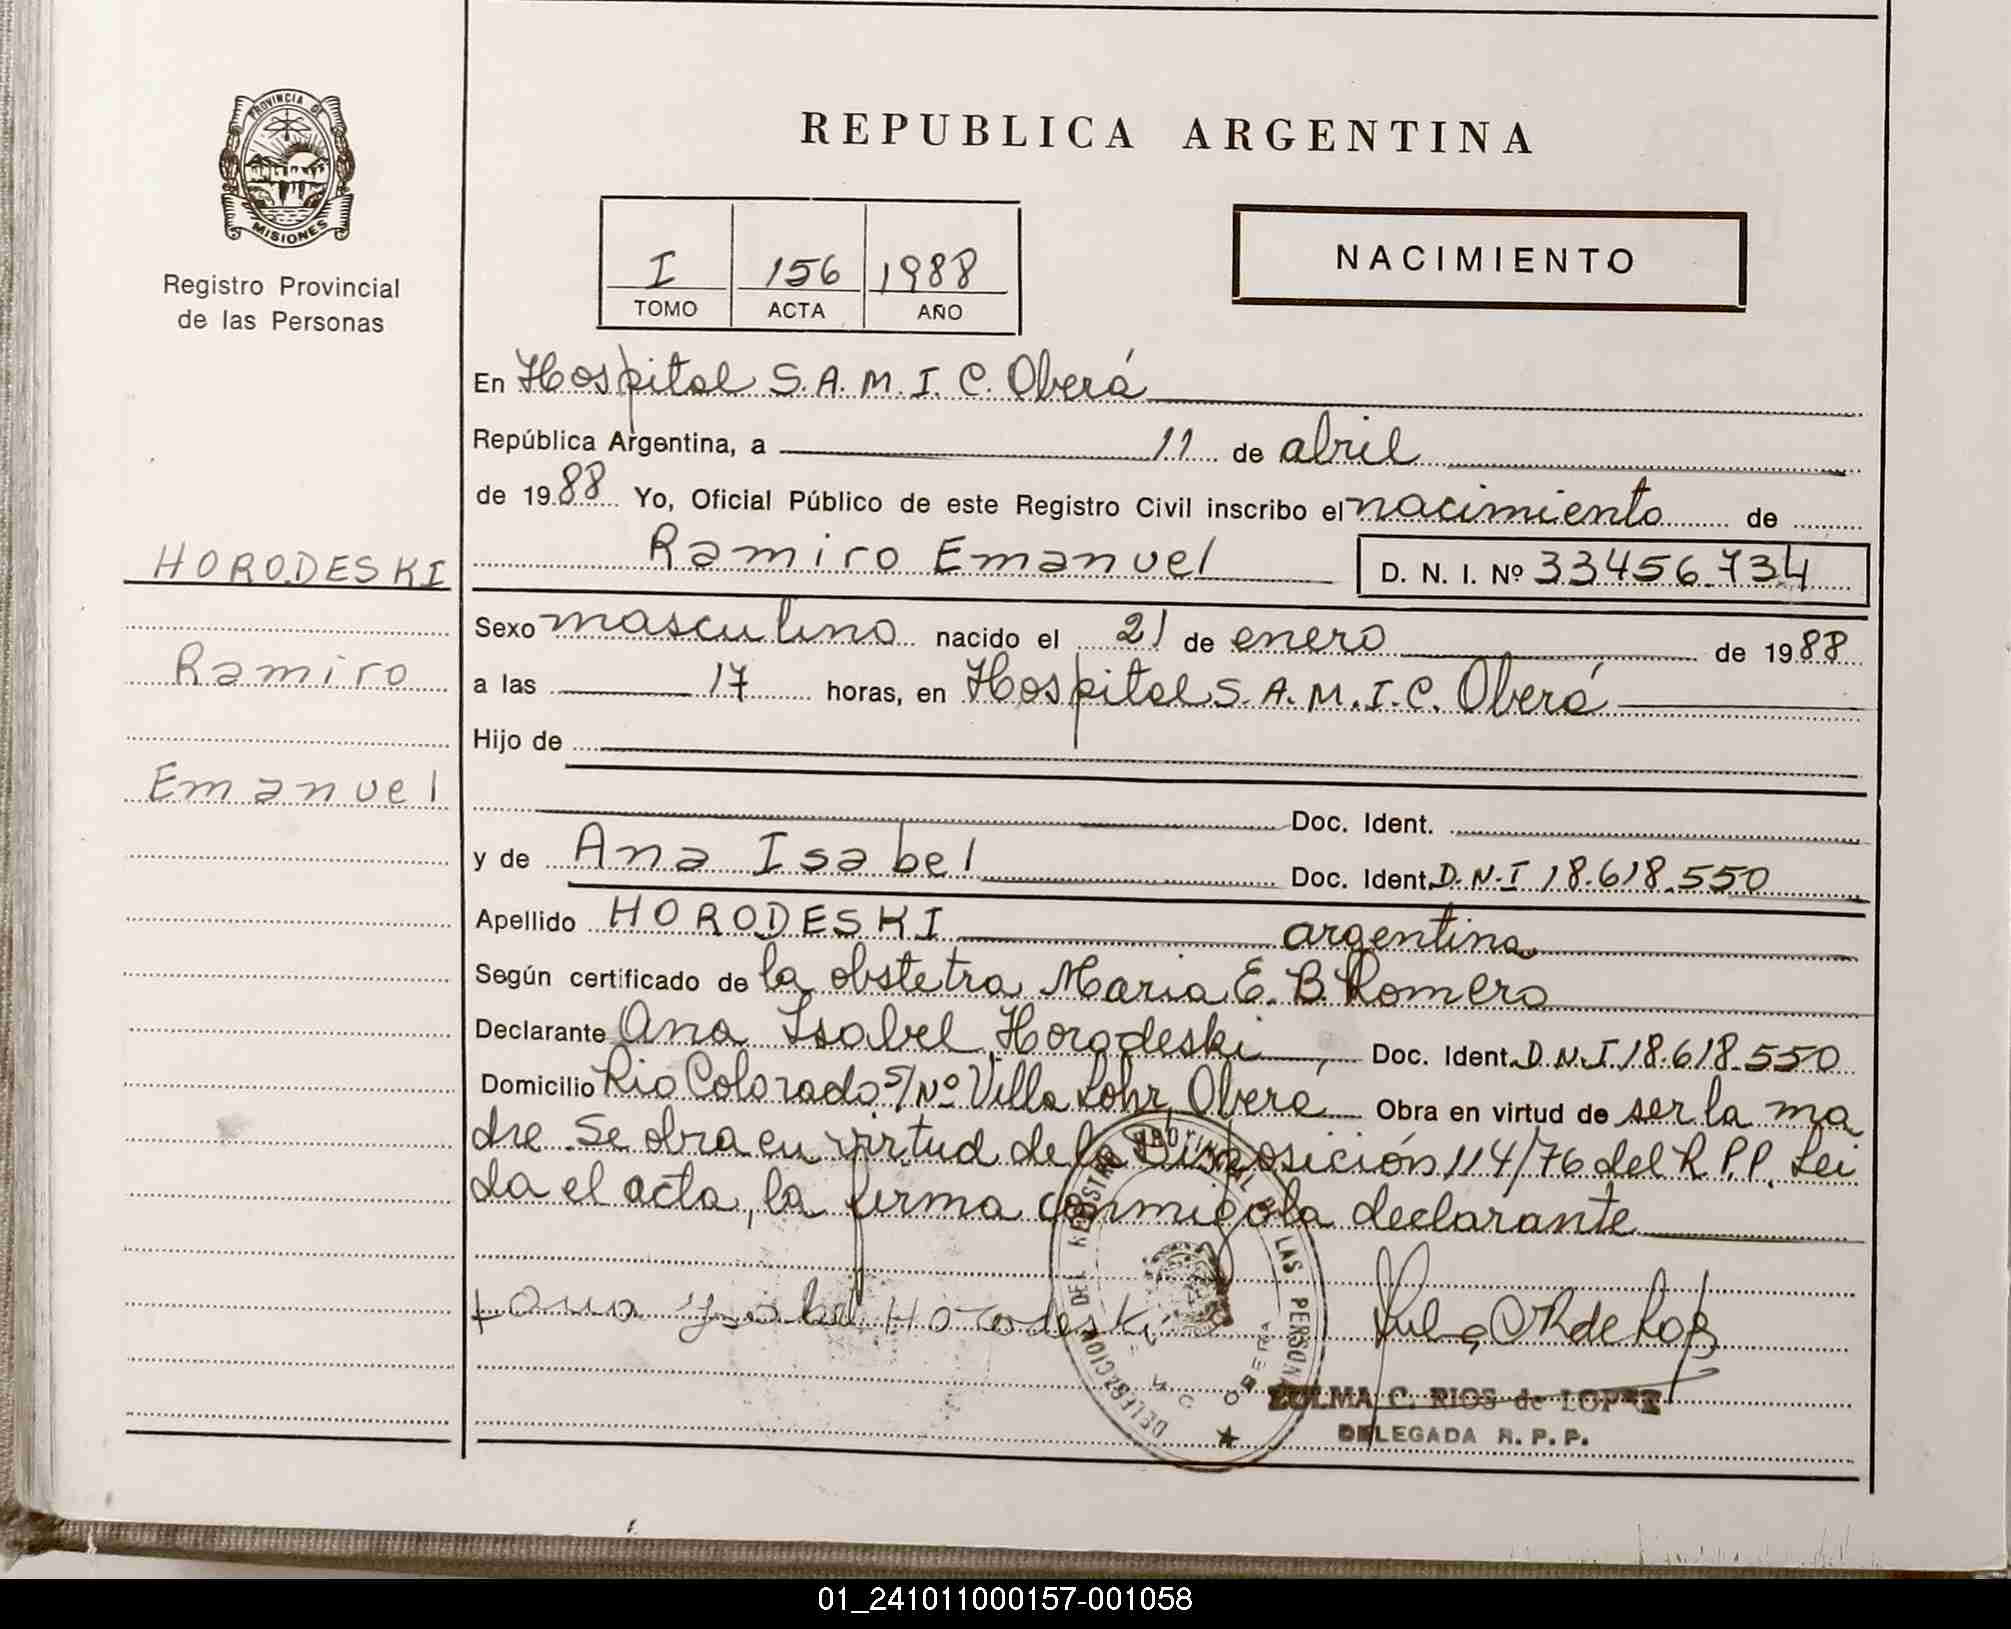 PROVINCIA DE
MISIONES
Registro Provincial
de las Personas
HORODESKI
Ramiro
Emanuel
REPUBLICA ARGENTINA
I 156 1988
TOMO ACTA AÑO
NACIMIENTO
En Hospital S.A.M.I.C. Oberá
República Argentina, a 11 de abril
de 1988 Yo, Oficial Público de este Registro Civil inscribo el nacimiento de
Ramiro Emanuel D. N. I. Nº 33456.734
Sexo masculino nacido el 21 de enero de 1988
a las 17 horas, en Hospital S.A.M.I.C. Oberá
Hijo de
Doc. Ident.
y de Ana Isabel Doc. Ident. D.N.I 18.618.550
Apellido HORODESKI argentina
Según certificado de la obstetra Maria E. B. Romero
Declarante Ana Isabel Horodeski, Doc. Ident. D.N.I. 18.618.550
Domicilio Rio Colorado s/Nº Villa Lohr, Oberá Obra en virtud de ser la ma
dre. Se obra en virtud de la Disposición 114/76 del R.P.P. Lei
da el acta, la firma conmigo la declarante
Horodeski
DELEGACION DEL REGISTRO PROVINCIAL DE LAS PERSONAS
OBERA
ZULMA C. RIOS de LOPEZ
DELEGADA R. P. P.
01_241011000157-001058